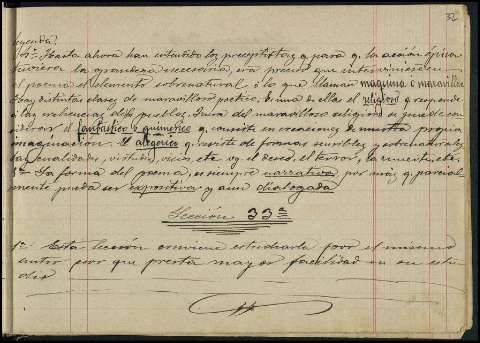 32
leyenda.
4ª Hasta ahora han entendido los preceptistas q para q la acción épica
tuviera la grandeza necesaria, era preciso que interviniese en
el poema el elemento sobrenatural ó lo que llaman máquina ó maravilloso
distintas clases de maravilloso poético. Es una de ellas el religioso q responde
á las creencias de los pueblos. Fuera del maravilloso religioso se puede con-
siderar el fantástico ó quimérico q consiste en creaciones de nuestra propia
imaginación. El alegórico q reviste de formas sensibles y sobrenaturales
las cualidades, virtudes, vicios, etc. vg el deseo, el terror, la muerte, etc.
5ª La forma del poema, es siempre narrativa, por más q parcial-
mente pueda ser expositiva y aun dialogada
Lección 33ª
1ª Esta lección conviene estudiarla por el mismo
autor por que presta mayor facilidad en su estu-
dio